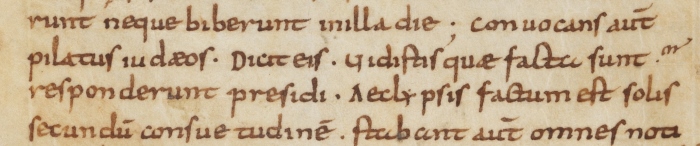 runt neque biberunt in illa die ; convocans aut̄
pilatus iudæos . Dicit eis . Vidistis quæ facta sunt .
responderunt presidi . Aeclypsis factum est solis
secundū consuetudinē . stabant aut̄ omnes noti